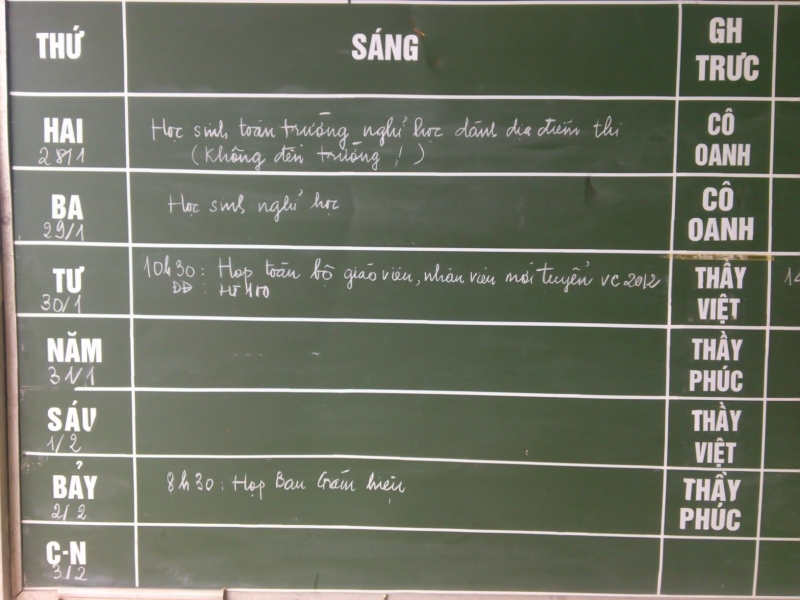 THỨ SÁNG GH TRỰC
HAI 28/1 Học sinh toàn trường nghỉ học dành địa điểm thi CÔ OANH
(Không đến trường!)
BA 29/1 Học sinh nghỉ học CÔ OANH
TƯ 30/1 10h30: Họp toàn bộ giáo viên, nhân viên mới tuyển VC 2012 THẦY VIỆT 14
DĐ: HT 100
NĂM 31/1 THẦY PHÚC
SÁU 1/2 THẦY VIỆT
BẢY 2/2 8h30: Họp Ban Giám hiệu THẦY PHÚC
C-N 3/2